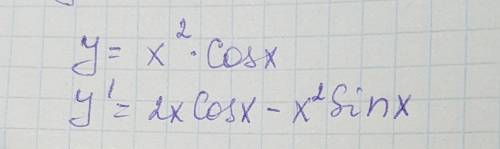 y = x² · Cosx
y' = 2xCosx - x²Sinx